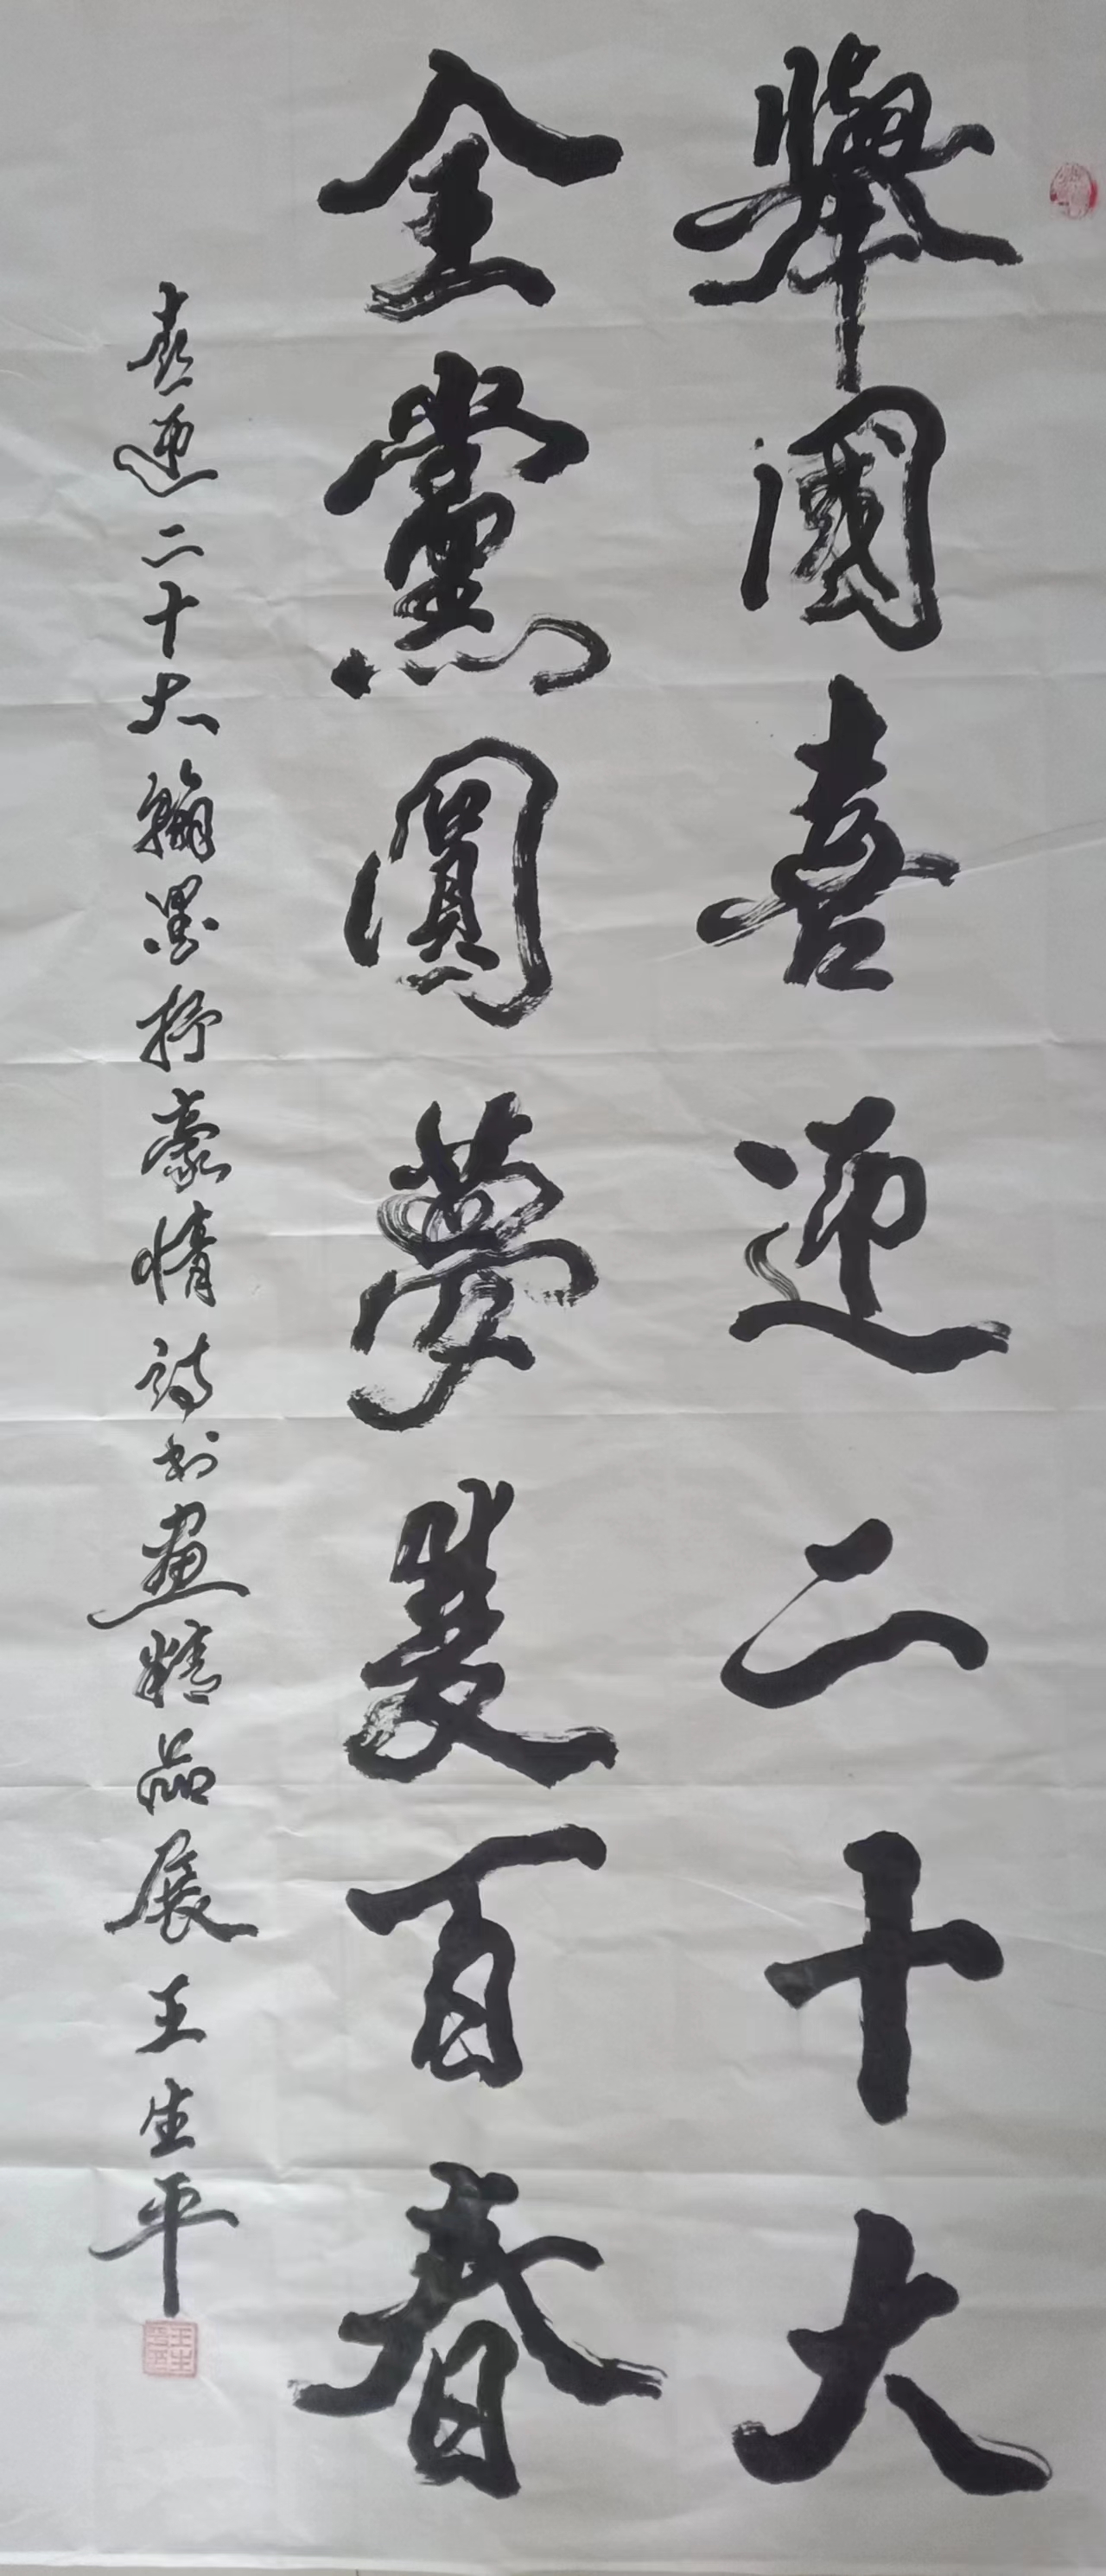 舉國喜迎二十大
全黨圓夢建百春
喜迎二十大翰墨抒豪情詩书畫精品展王生平